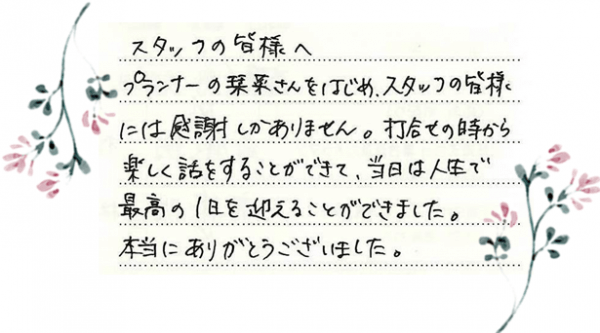 スタッフの皆様へ
プランナーの栞菜さんをはじめ、スタッフの皆様
には感謝しかありません。打合せの時から
楽しく話をすることができて、当日は人生で
最高の1日を迎えることができました。
本当にありがとうございました。